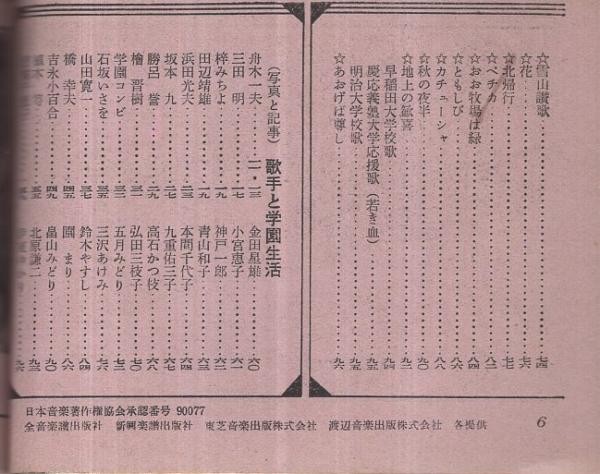 ☆雪山讃歌……七四
☆花……七六
☆北帰行……七七
☆ペチカ……八二
☆おお牧場は緑……八六
☆ともしび……八八
☆カチューシャ……八八
☆秋の夜半……九〇
☆地上の歓喜……九二
早稲田大学校歌……九四
慶応義塾大学応援歌(若き血)……九五
明治大学校歌……九五
☆あおげば尊し……九六
(写真と記事) 歌手と学園生活
舟木一夫……一一・一三
三田 明……一七
梓みちよ……一九
田辺靖雄……一九
浜田光夫……二三
坂本 九……二七
勝呂 誉……二九
檜 晋樹……三一
学園コンビ……三三
石坂いさを……三七
山田寛一……三七
橋 幸夫……四五
吉永小百合……四九
金田星雄……六〇
小宮恵子……六一
神戸一郎……六二
青山和子……六三
本間千代子……六四
九重佑三子……六七
高石かつ枝……六八
弘田三枝子……七二
五月みどり……七三
三沢あけみ……七六
鈴木やすし……八四
園 まり……八六
畠山みどり……九二
北原謙二……九三
日本音楽著作権協会承認番号 90077
全音楽譜出版社 新興楽譜出版社 東芝音楽出版株式会社 渡辺音楽出版株式会社 各提供
6